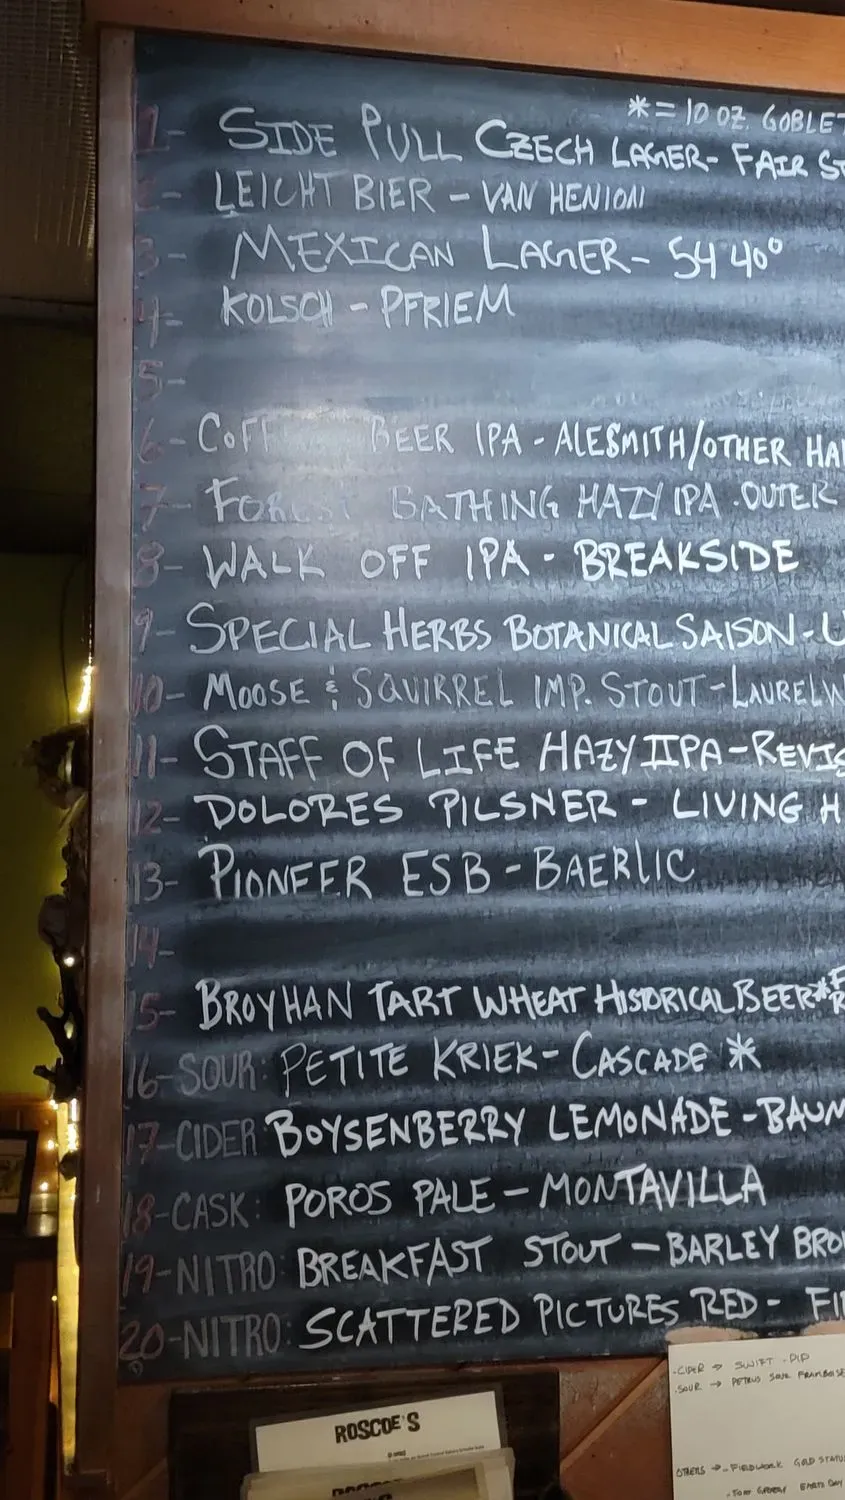 * = 10 OZ. GOBLET
1- SIDE PULL CZECH LAGER- FAIR ST
2- LEICHT BIER - VAN HENION
3- MEXICAN LAGER- 54 40°
4- KOLSCH - PFRIEM
5-
6- COFF BEER IPA - ALESMITH/OTHER HA
7- FOREST BATHING HAZY IPA . OUTER
8- WALK OFF IPA - BREAKSIDE
9- SPECIAL HERBS BOTANICAL SAISON - U
10- MOOSE & SQUIRREL IMP. STOUT - LAURELW
11- STAFF OF LIFE HAZY IIPA - REVIS
12- DOLORES PILSNER - LIVING H
13- PIONEER ESB - BAERLIC
14-
15- BROYHAN TART WHEAT HISTORICAL BEER*
16- SOUR: PETITE KRIEK - CASCADE *
17- CIDER BOYSENBERRY LEMONADE - BAUM
18- CASK: POROS PALE - MONTAVILLA
19- NITRO: BREAKFAST STOUT - BARLEY BRO
20- NITRO: SCATTERED PICTURES RED - FI
- CIDER → SWIFT - PIP
- SOUR → PETRUS SOUR FRAMBOISE
ROSCOE'S
OTHERS → - FIELDWORK GOLD STATU